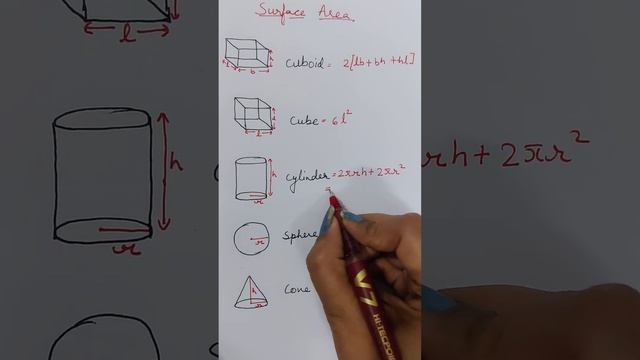 Surface Area
Cuboid = 2[lb+bh+hl]
h
l
b
Cube = 6l²
l
l
Cylinder = 2πrh + 2πr²
=
h
r
Sphere
r
Cone
h
r
h
r
rh + 2πr²
V7
HI-TECPO